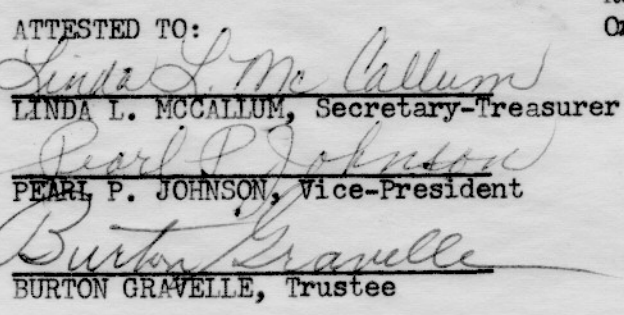 ATTESTED TO:
Linda L. McCallum
LINDA L. MCCALLUM, Secretary-Treasurer
Pearl P. Johnson
PEARL P. JOHNSON, Vice-President
Burton Gravelle
BURTON GRAVELLE, Trustee